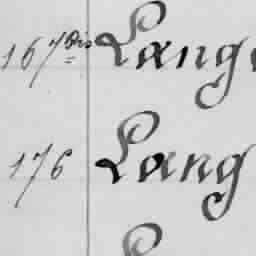 167bis Lang
176 Lang